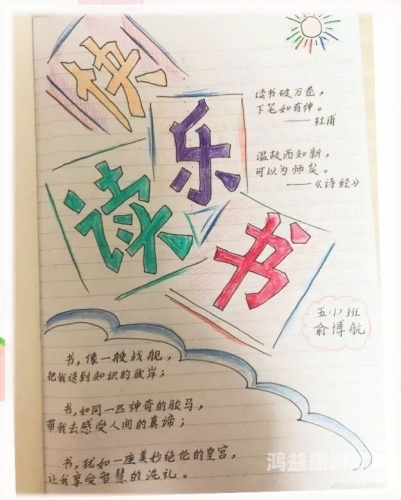 快
乐
读
书
读书破万卷，
下笔如有神。
——杜甫
温故而知新，
可以为师矣。
——《诗经》
五（1）班
俞博航
书，像一艘战舰，
把我送到知识的彼岸；
书，如同一匹神奇的骏马，
带我去感受人间的真谛；
书，犹如一座美妙绝伦的皇宫，
让我享受智慧的洗礼。
鸿益康